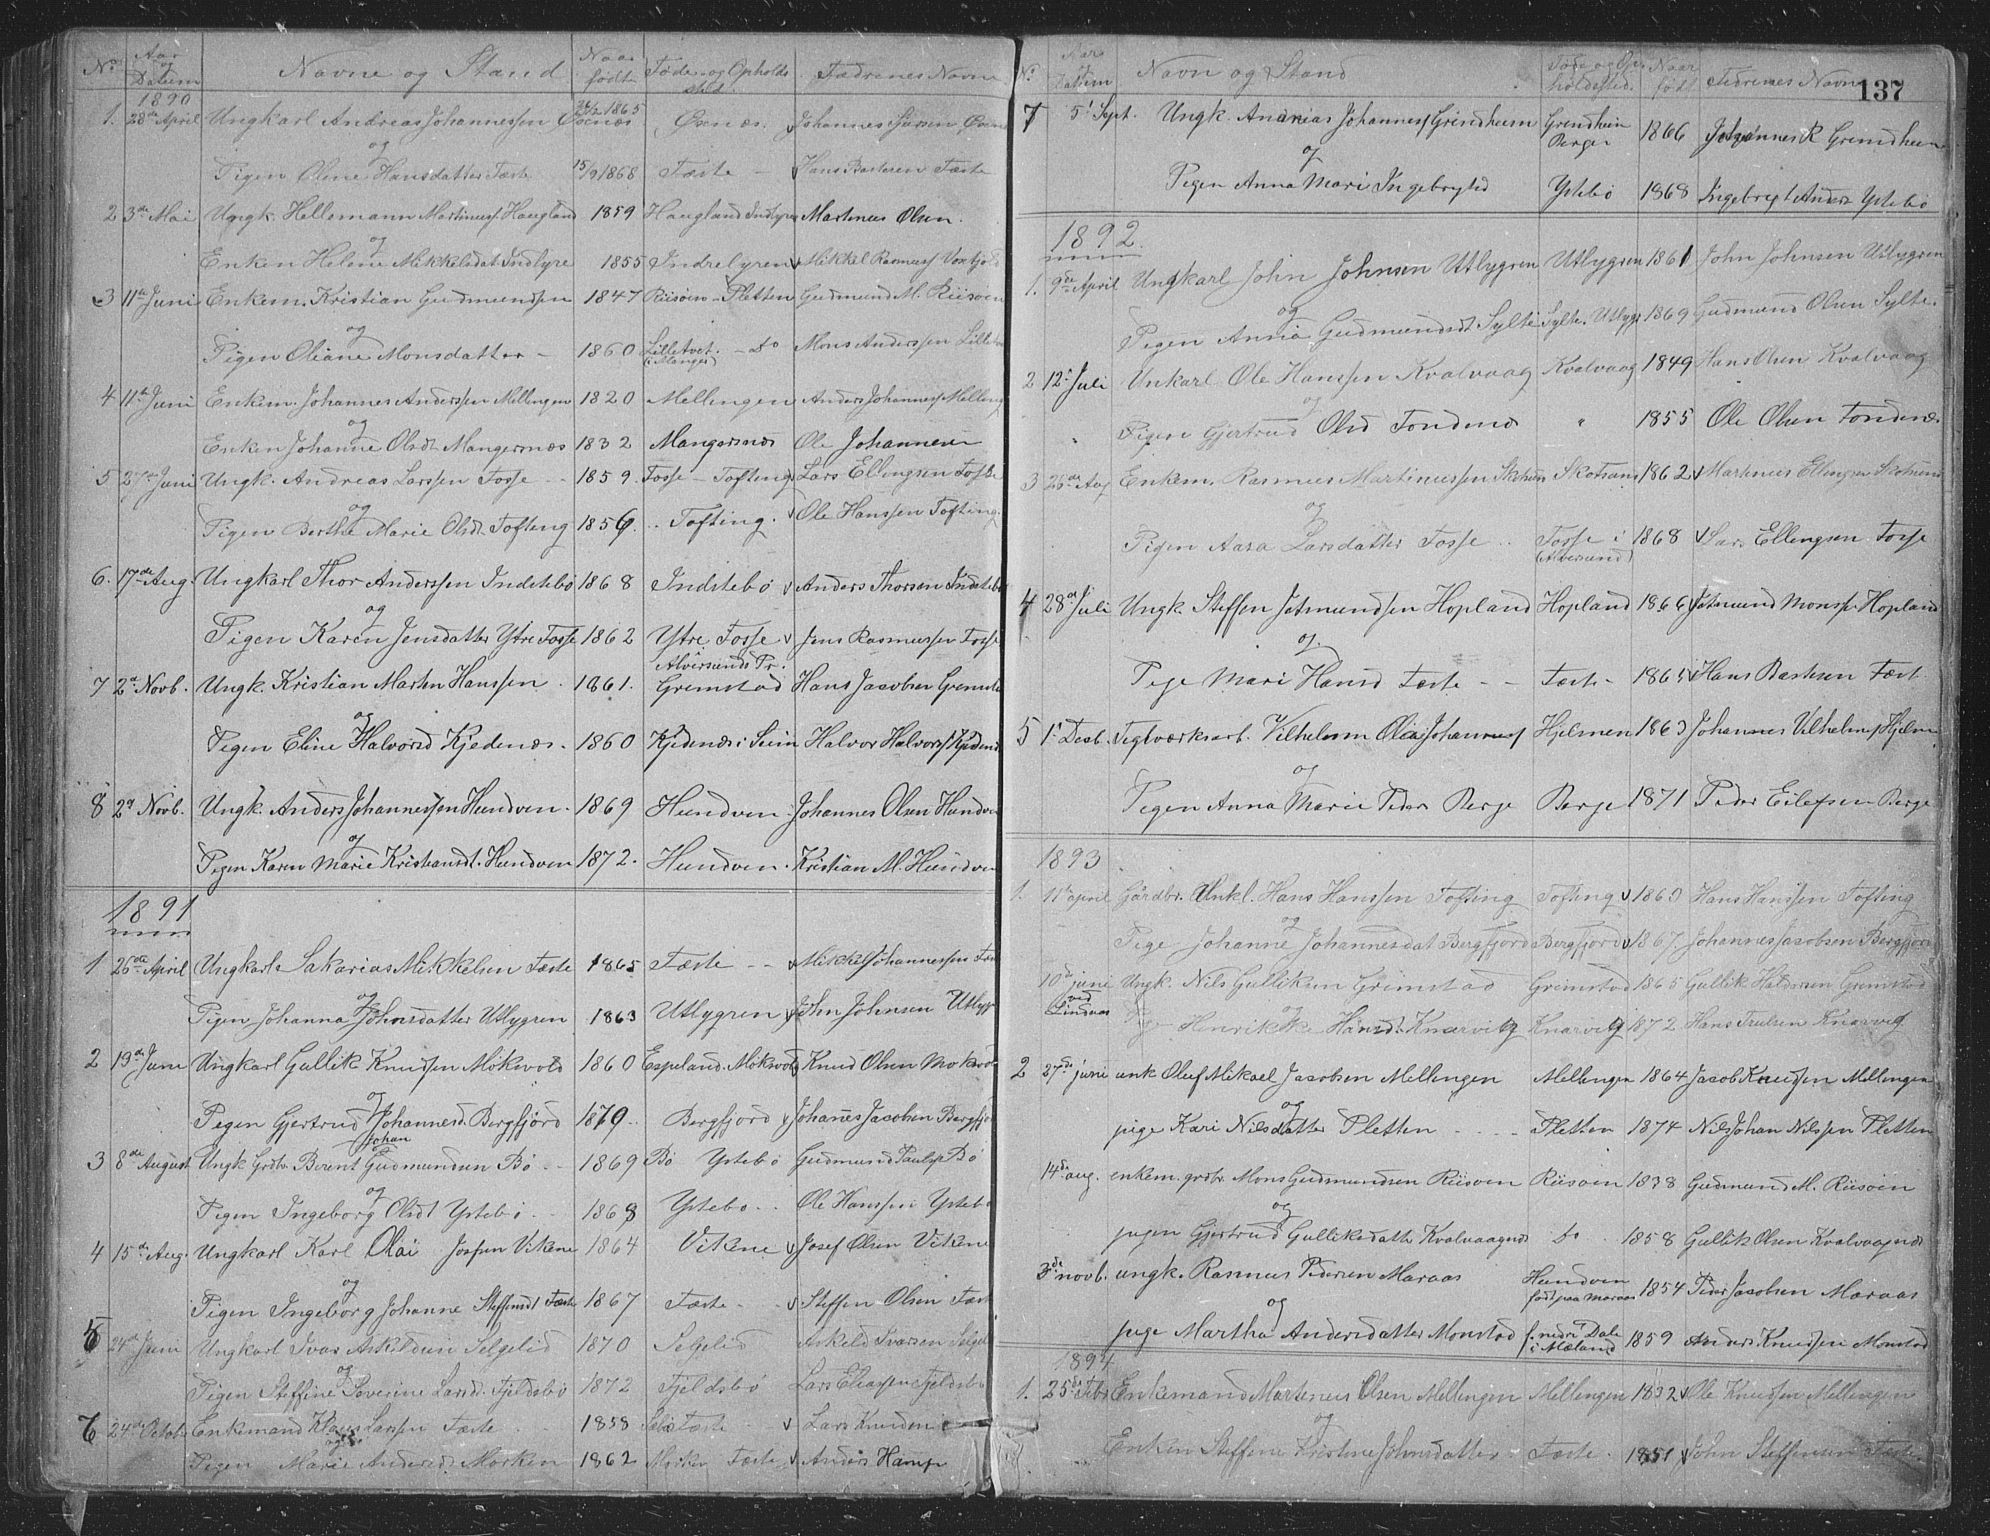 No Aar og Datum Navne og Stand Naar født Føde- og Opholdssted Fædrenes Navne
1890
1. 28de April Ungkarl Andreas Johannessen Øxnæs 1865 Øxnæs. Johannes
og
Pigen Oline Hansdatter Fæste 15/9 1868 Fæste Hans Bastesen Fæste
2 3de Mai Ungk. Hellemann Martinuss. Haugland 1859 Haugland Indlyre Martinus Olsen.
og
Enken Helene Mikkelsdat. Indlyre 1855 Indrelyren Mikkel Rasmuss.
3 11te Juni Enkem. Kristian Gudmundsen 1847 Riisøen - Pletten Gudmund M. Riisøen
og
Pigen Oliane Monsdatter - 1860 Lilletvet. (i Manger) - Do Mons Anderssen
4 11te Juni Enkem. Johannes Anderssen Mellingen 1820 Mellingen Anders Johanness. Melling
og
Enken Johanne Olsdt. Mangersnæs 1832 Mangersnæs Ole Johannesen
5 27de Juni Ungk. Andreas Larssen Fosse 1859. Fosse - Tofting Lars Ellingsen Fosse
og
Pigen Berthe Marie Olsdt. Tofting 1856. Tofting. Ole Hanssen Tofting.
6. 17de Aug. Ungkarl Thor Anderssen Indstebø 1868 Indstebø Anders Thorsen Indstebø
og
Pigen Karen Jensdatter Ytre Fosse 1862 Ytre Fosse Alversunds Pr. Jens Rasmussen Fosse
7 2d Novb. Ungk. Kristian Martin Hanssen 1861. Grimstad Hans Jacobsen
og
Pigen Eline Halvorsd Kjedenæs. 1860 Kjedenæs i Seim Halvor Halvors. Kjedenæs
8 2d Novb. Ungk. Anders Johannessen Hundven. 1869 Hundven. Johannes Olsen Hundven
og
Pigen Karen Marie Kristiansdt. Hundven 1872. Hundven. Kristian M. Hundven
1891
1 26de April Ungkarl Sakarias Mikkelsen Fæste 1865 Fæste Mikkel Johannessen
og
Pigen Johanna Johnsdatter Utlygren 1863 Utlygren John Johnsen
2 19de Juni Ungkarl Gullik Knudsen Mokvold 1860 Espeland. Mokvold Knud Olsen
og
Pigen Gjertrud Johannesd. Bergfjord 1870. Bergfjord Johanes Jacobsen
Johan
3 8de August Ungk. Grdbr. Berent Gudmundsen Bø 1869 Bø Ystebø Gudmund Paulss. Bø
og
Pigen Ingeborg Olsdt Ystebø 1868 Ystebø Ole Hanssen Ystebø
4 15de Aug. Ungkarl Karl Olai Jossen Vikene 1864 Vikene Josef Olsen Vikene
og
Pigen Ingeborg Johanne Steffensdt Fæste 1867 Fæste Steffen Olsen Fæste
5 24de Juni Ungkarl Ivar Askildsen Selgelid 1870 Selgelid Askild Ivarsen
og
Pigen Steffine Severine Larsd. Fjeldsbø 1872 Fjeldsbø Lars Eliassen Fjeldsbø
6 24de Octob. Enkemand Klaus Larssen Fæste 1858 Fæste Lars Knudsen
og
Pigen Marie Andersd. Morken 1862 Morken Fæste Anders Hamp
137
No. Aar og Datum Navn og Stand Føde og Opholdssted. Naar født Fædrenes Navne
7 5t Sept. Ungk. Andreas Johanness. Grindheim Grendheim Berge 1866 Johannes R Grendheim
og
Pigen Anna Mari Ingebrigtsd Ystebø 1868 Ingebrigt Anders. Ystebø
1892.
1. 9de April Ungkarl John Johnsen Utlygren Utlygren 1861 John Johnsen Utlygren
og
Pigen Anna Gudmundsdt Sylte Sylte. Utlygr. 1869 Gudmund Olsen Sylte.
2 12t Juli Unkarl Ole Hanssen Kvalvaag Kvalvaag 1849 Hans Olsen Kvalvaag
og
Pigen Gjertrud Olsd Fondenes " 1855 Ole Olsen Fondenes.
3 26de Aug Enkem. Rasmus Martinussen Skotsund 1862 Martinus Ellingsen
og
Pigen Aasa Larsdatter Fosse Fosse i (Alversund) 1868 Lars Ellengsen Fosse
4 28de Juli Ungk Steffen Jetmundsen Hopland Hopland 1866 Jetmund Monss. Hopland
og
Pige Mari Hansd Fæste Fæste 1865 Hans Bastesen Fæst
5 1t Desb. Teglværksarb. Vilhelm Olai Johanness Hjelmen 1863 Johannes Vilhelms. Hjelm
og
Pigen Anna Marie Peders Berge Berge 1871 Peder Eilefsen Berge
1893
1. 11te april Gårdbr. Unkl. Hans Hanssen Tofting Tofting 1869 Hans Hanssen Tofting
og
Pige Johanne Johannesdat Bergfjord Bergfjord 1867. Johannes Jacobsen Bergfjord
10de juni ved Lindaas Ungk. Nils Gulliksen Grimstad Grimstad 1865 Gullik Haldorsen Grimstad
og
Henrikke Hansdt. Knarvig Knarvig 1872 Hans Truelsen Knarvig
2 27de juni unk Oluf Mikael Jacobsen Mellingen Mellingen 1864 Jacob Knudsen Mellingen
og
pige Kari Nilsdatter Pletten Pletten 1874 Nils Johan Nilssen Pletten
14de aug. enkem. grdbr. Mons Gudmundsen Riisøen Riisøen 1838 Gudmund M. Riisøen
og
pigen Gjertrud Gulliksdatter Kvalvaagnæs Do 1858 Gullik Olsen Kvalvaagnæs
3de novb. ungk. Rasmus Pedersen Maraas Hundven født paa Maraas 1854 Peder Jacobsen Maraas
og
pige Martha Andersdatter Monstad f. nedre Dale i Mæland 1859 Anders Knudsen Monstad
1894
1. 25de Febr Enkemand Martinus Olsen Mellingen Mellingen 1832 Ole Knudsen Mellingen
og
Enken Steffine Kristine Johnsdatter Fæste 1851 John Steffensen Fæste